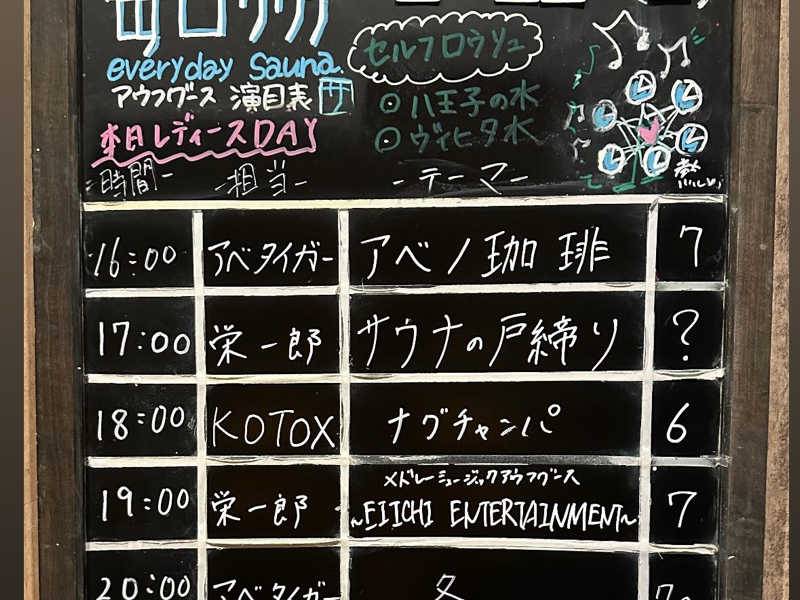 毎日サウナ
everyday Sauna.
アウフグース 演目表 サ
本日レディースDAY
セルフロウリュ
◦八王子の水
◦ヴィヒタ水
-時間- -担当- -テーマ-
16:00 アベタイガー アベノ珈琲 7
17:00 栄一郎 サウナの戸締り ?
18:00 KOTOX ナグチャンパ 6
メドレーミュージックアウフグース
19:00 栄一郎 ~EIICHI ENTERTAINMENT~ 7
20:00 アベタイガー